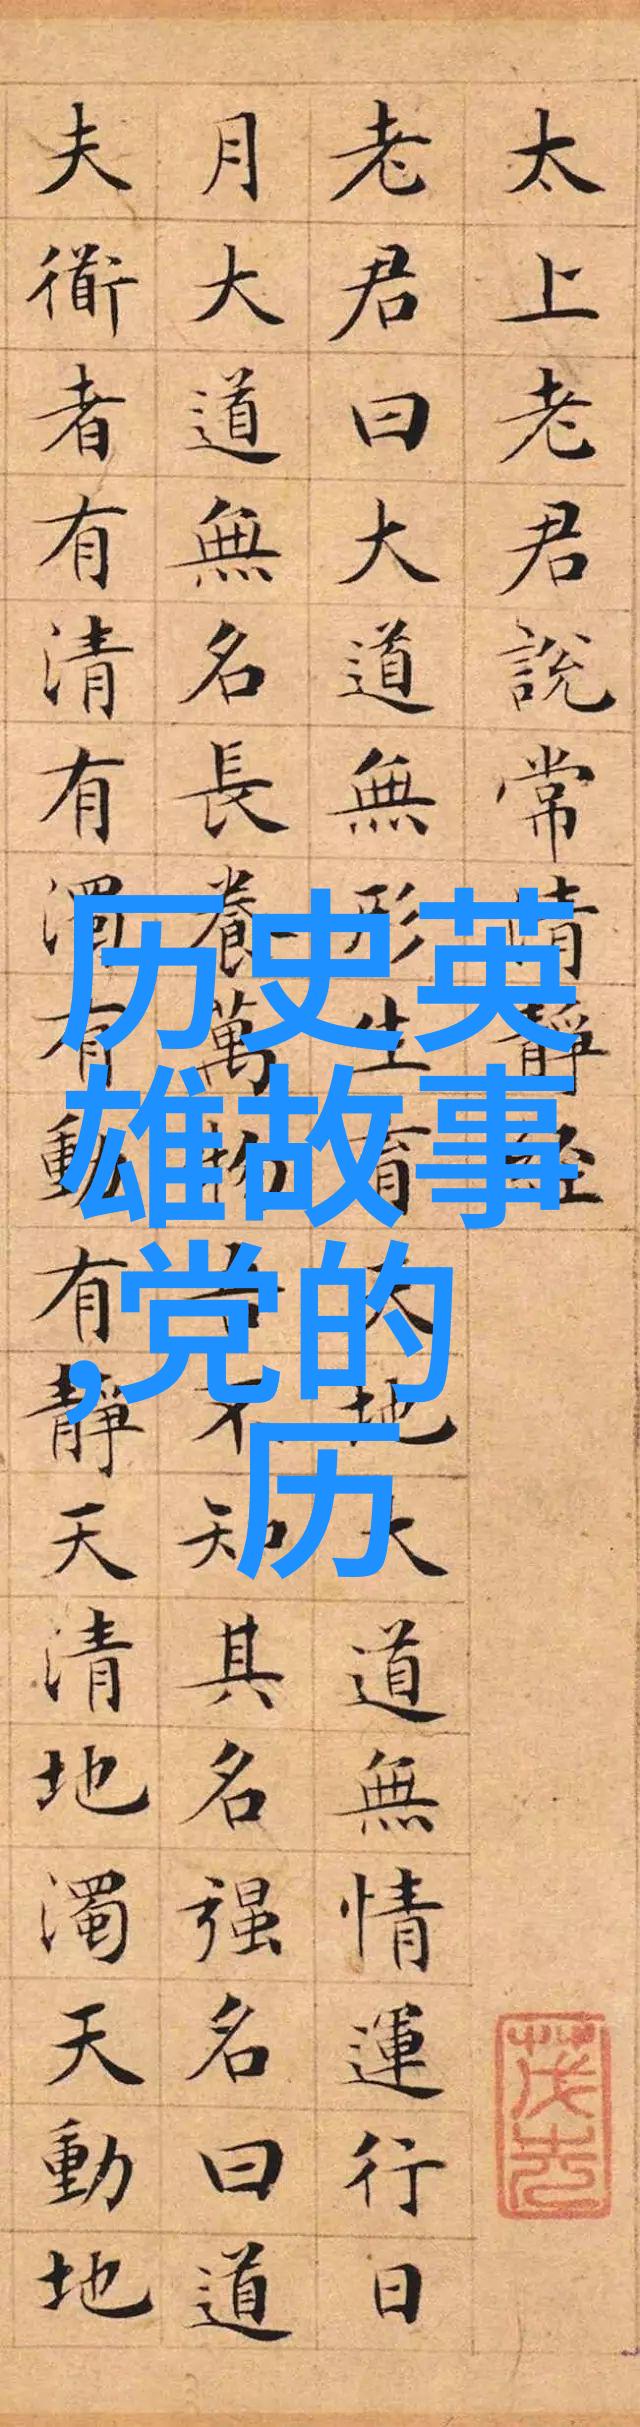 太上老君說常清靜經
老君曰大道無形生育天地大道無情運行日
月大道無名長養萬物吾不知其名强名曰道
夫衜者有清有濁有動有靜天清地濁天動地
历史英
雄故事
,党的
历